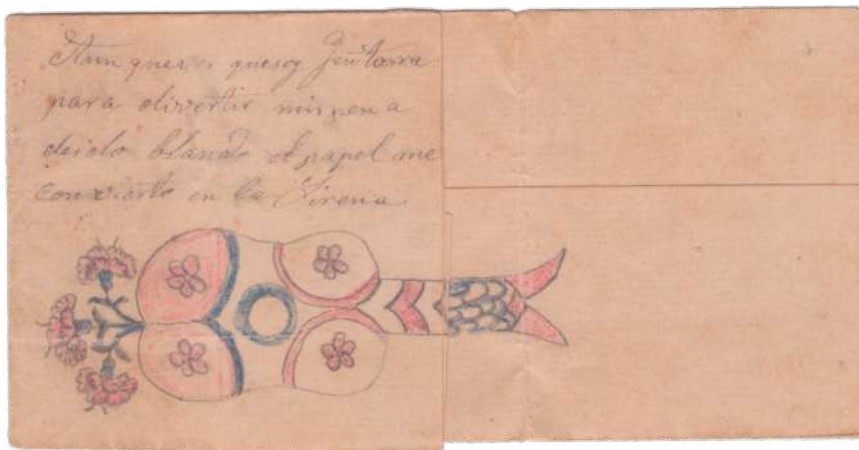 Aun que ves que soy Guitarra
para divertir mis pena
deido blando el papel me
convierto en la Sirena